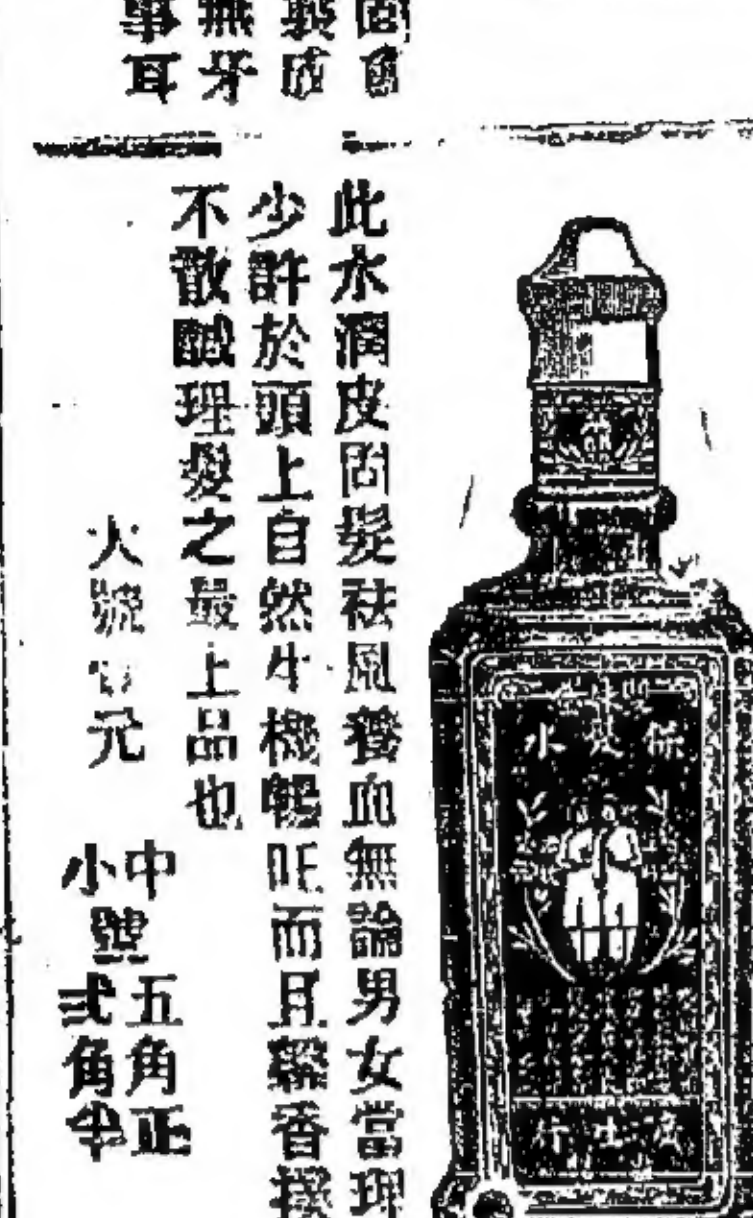 無牙
事耳
此水潤皮固髮祛風養血無論男女當理
少許於頭上自然生機暢旺而且馨香撲
不散誠理髮之最上品也
大號 元
中
小
號
五角正
弍角半
保髮水
廣生行